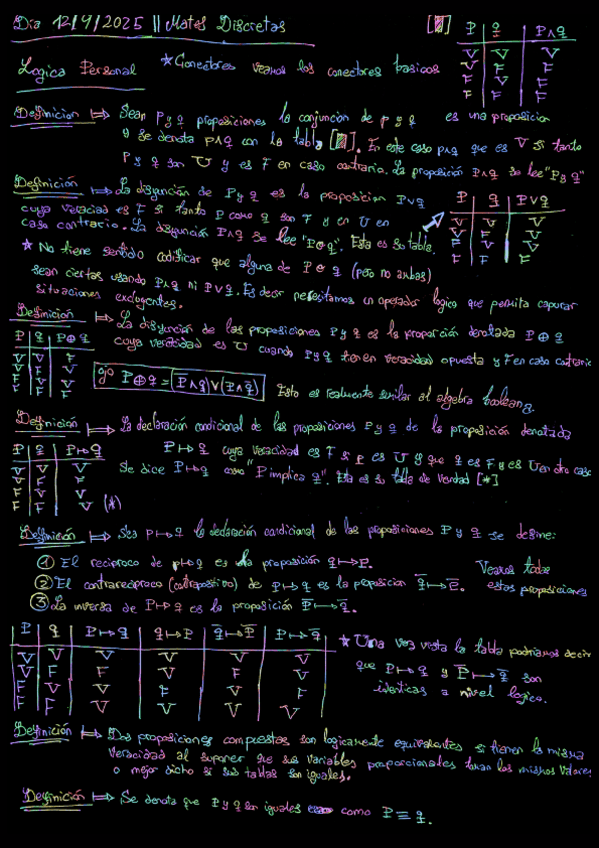 Dia 12/9/2025 || Mates Discretas
Logica Personal ★Conectores veamos los conectores basicos
[*] P q P∧q
V V V
V F F
F V F
F F F
Definicion ⟼ Sean P y q proposiciones la conjunción de p y q es una proposicion
y se denota p∧q con la tabla [*]. En este caso p∧q que es V si tanto
P y q son V y es F en caso contrario. La proposición P∧q se lee "P y q"
Definición ⟼ La disyunción de P y q es la proposicion P∨q
cuya veracidad es F si tanto P como q son F y en V en
caso contrario. La disyunción P∧q se lee "P o q". Esta es su tabla.
P q P∨q
V V V
V F V
F V V
F F F
★ No tiene sentido codificar que alguna de P o q (pero no ambas)
sean ciertas usando P∧q ni P∨q. Es decir necesitamos un operador logico que permita capturar
situaciones excluyentes.
Definición ⟼ La disyunción de las proposiciones P y q es la proporción denotada P ⊕ q
cuya veracidad es V cuando P y q tienen veracidad opuesta y F en caso contrario
P q P⊕q
V V F
V F V
F V V
F F F
ojo P⊕q = (P∧q)∨(P∧q) Esto es realmente similar al algebra booleana.
Definición ⟼ La declaración condicional de las proposiciones P y q de la proposición denotada
P↦q cuya veracidad es F si p es V y que q es F y es V en otro caso
Se dice P↦q como "P implica q". Esta es su tabla de verdad [*]
P q P↦q
V V V
V F F
F V V
F F V (*)
Definición ⟼ Sea p↦q la declaración condicional de las proposiciones P y q se define:
① El reciproco de p↦q es la proposición q↦P. Veamos todas
② El contrareciproco (contrapositivo) de P↦q es la proposicion q̅↦P̅. estas proposiciones
③ La inversa de P↦q es la proposición P̅↦q̅.
P q P↦q q↦P q̅↦P̅ P↦q̅
V V V V V V
★ Una vez vista la tabla podriamos decir
que P↦q y P̅↦q̅ son
identicas a nivel logico.
Definición ⟼ Dos proposiciones compuestas son logicamente equivalentes si tienen la misma
veracidad al suponer que sus variables proporcionales toman los mismos valores
o mejor dicho si sus tablas son iguales.
Definición ⟼ Se denota que P y q son iguales como P ≡ q.